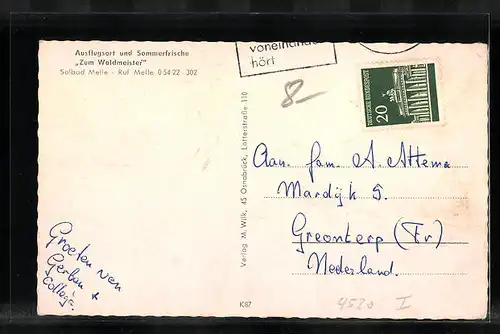 Ausflugsort und Sommerfrische
„Zum Waldmeister"
Solbad Melle - Ruf Melle 0 54 22 - 302
voneinander
hört
8-
DEUTSCHE BUNDESPOST
20
Verlag M. Wilk, 45 Osnabrück, Lotterstraße 110
Aan. fam. A. Attema
Mardijk 5.
Greonterp (Fr)
Nederland.
Groeten van
Gerben +
K67
4520 I